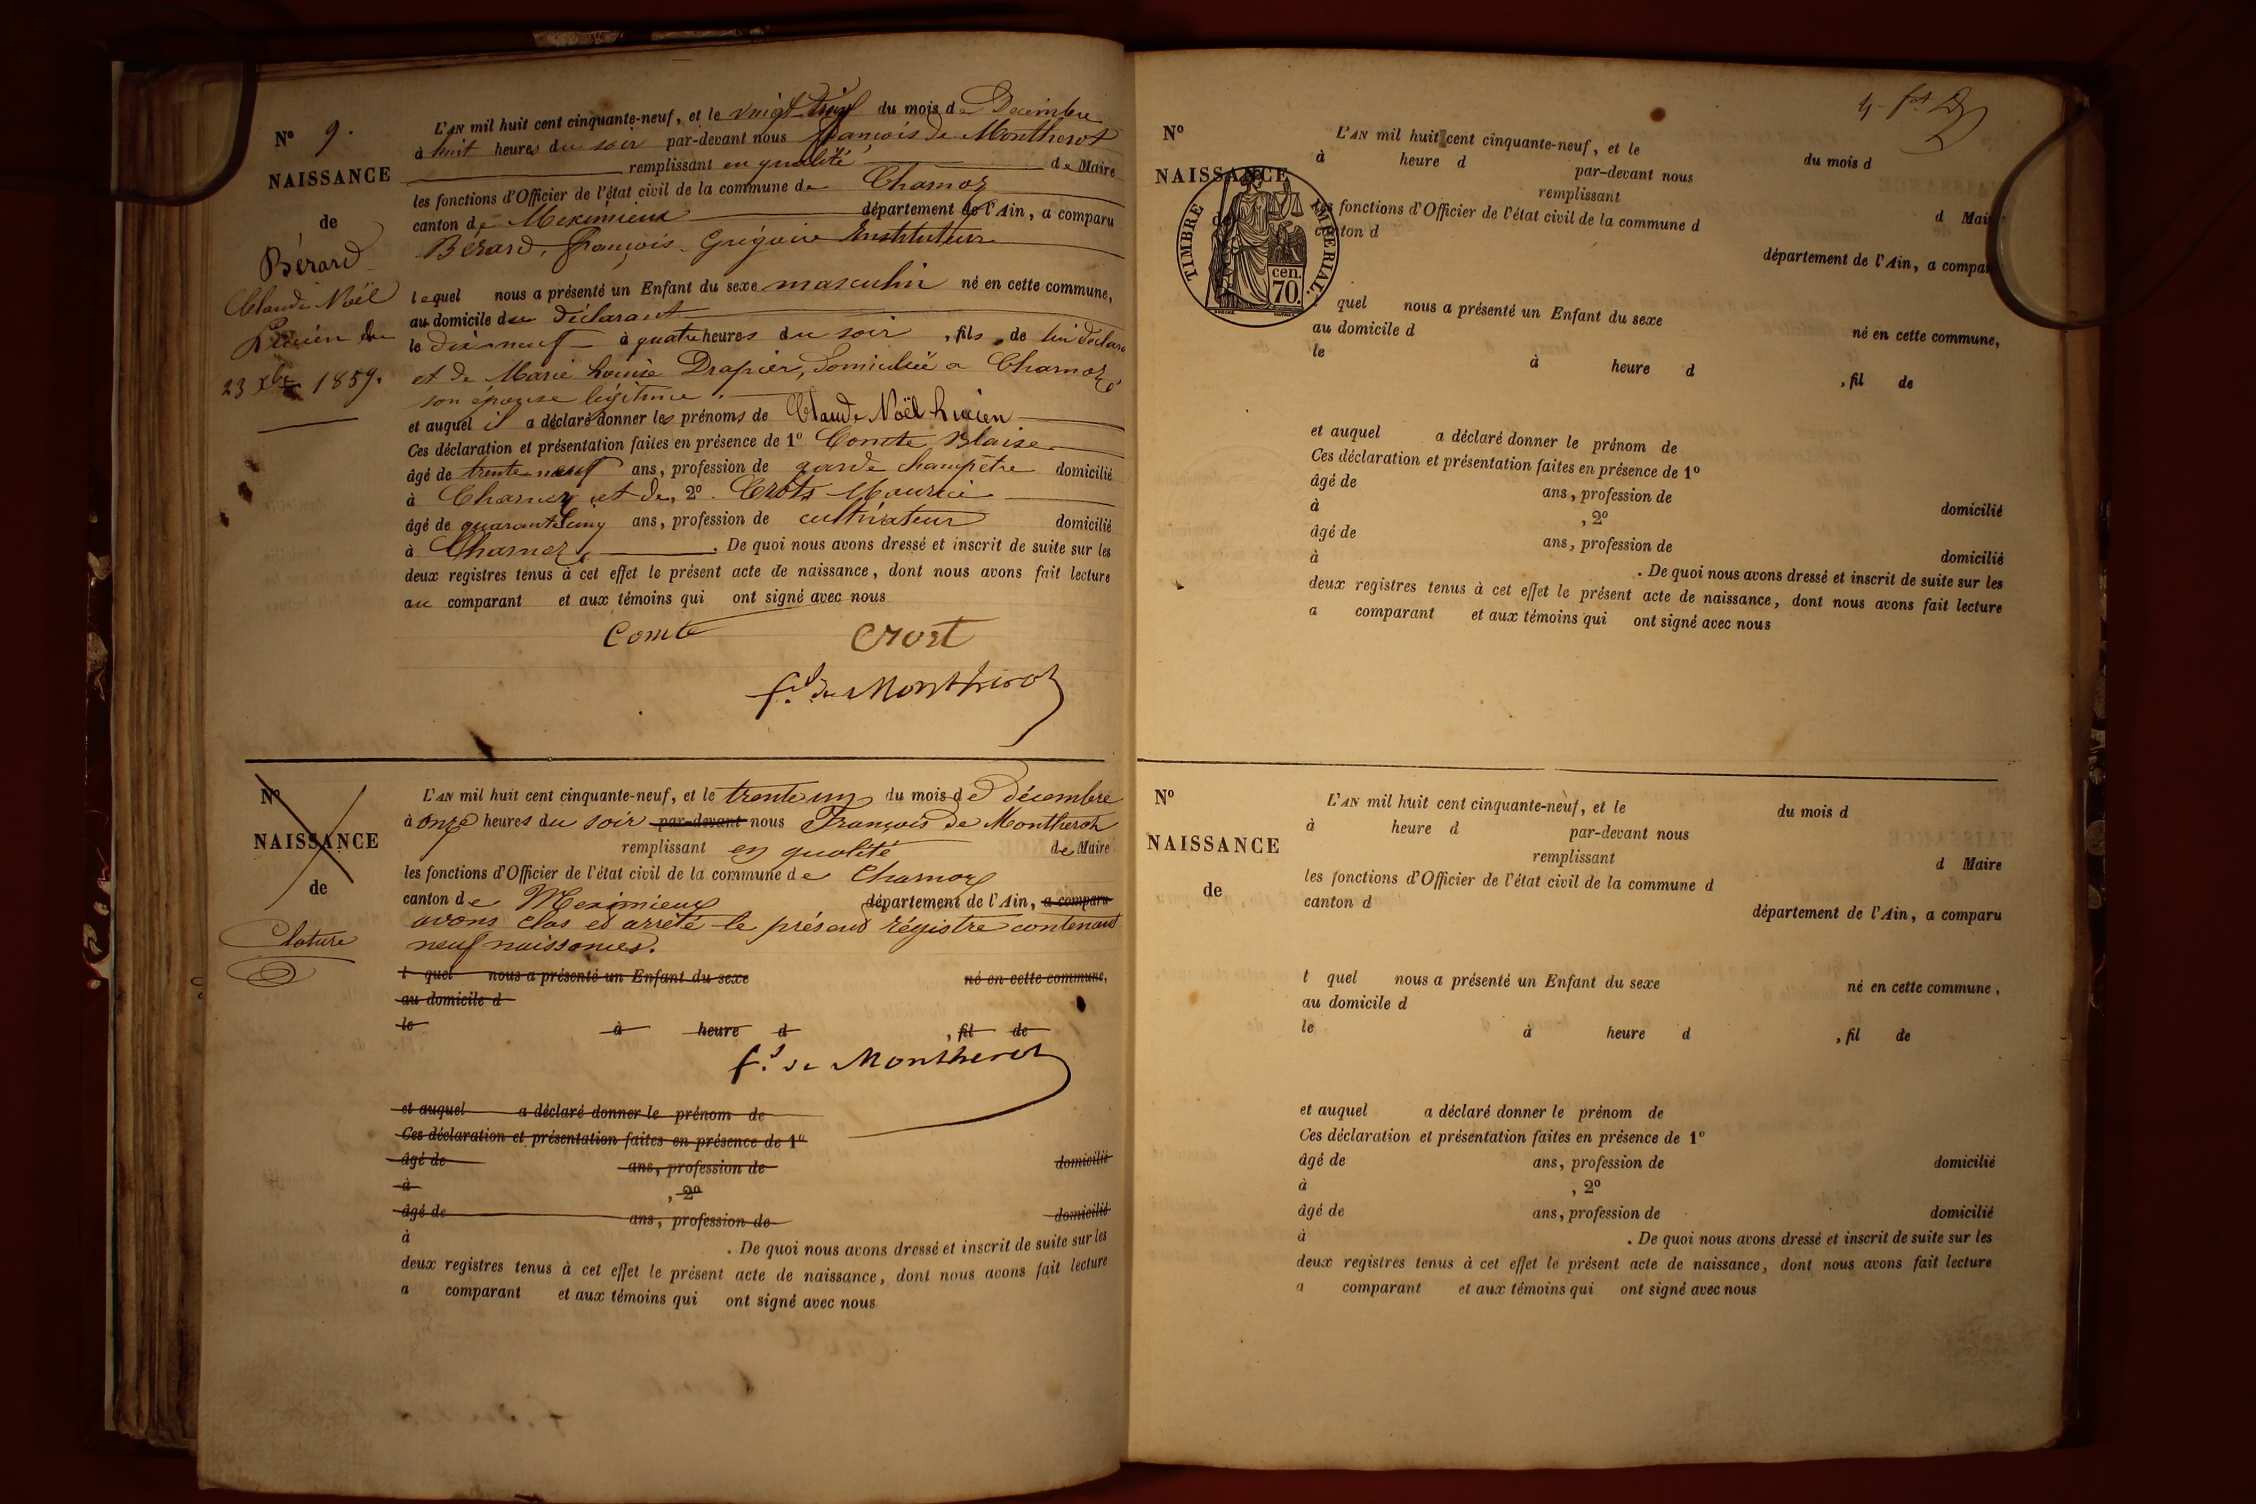 N° 9.
NAISSANCE
de
Bérard
Claude Noël
Lucien du
23 Xbre 1859.
L'AN mil huit cent cinquante-neuf, et le vingt du mois de Decembre
à huit heures du soir par-devant nous françois de Montherot
remplissant en qualité de Maire
les fonctions d'Officier de l'état civil de la commune de Charnoz
canton de Meximieux département de l'Ain, a comparu
Bérard, françois Grégoire Instituteur
lequel nous a présenté un Enfant du sexe masculin né en cette commune,
au domicile du déclarant
le dix neuf à quatre heures du soir, fils, de lui déclarant
et de Marie Louise Drapier, domiciliée à Charnoz
son épouse légitime.
et auquel il a déclaré donner les prénoms de Claude Noël Lucien
Ces déclaration et présentation faites en présence de 1° Comte Blaise
âgé de trente neuf ans, profession de garde champêtre domicilié
à Charnoz et de, 2° Crots Maurice
âgé de quarante cinq ans, profession de cultivateur domicilié
à Charnoz. De quoi nous avons dressé et inscrit de suite sur les
deux registres tenus à cet effet le présent acte de naissance, dont nous avons fait lecture
au comparant et aux témoins qui ont signé avec nous
Comte Crost
f.d de Montherot
N°
NAISSANCE
de
Cloture
L'AN mil huit cent cinquante-neuf, et le trente un du mois de décembre
à onze heures du soir par-devant nous François de Montherot
remplissant en qualité de Maire
les fonctions d'Officier de l'état civil de la commune de Charnoz
canton de Meximieux département de l'Ain, a comparu
avons clos et arrêté le présent régistre contenant
neuf naissances.
t quel nous a présenté un Enfant du sexe né en cette commune,
au domicile d
le à heure d , fil de
f.d de Montherot
et auquel a déclaré donner le prénom de
Ces déclaration et présentation faites en présence de 1°
âgé de ans, profession de domicilié
à , 2°
âgé de ans, profession de domicilié
à . De quoi nous avons dressé et inscrit de suite sur les
deux registres tenus à cet effet le présent acte de naissance, dont nous avons fait lecture
a comparant et aux témoins qui ont signé avec nous
N°
NAISSANCE
de
TIMBRE IMPERIAL.
cen.
70.
L'AN mil huit cent cinquante-neuf, et le du mois d
à heure d par-devant nous
remplissant d Maire
les fonctions d'Officier de l'état civil de la commune d
canton d département de l'Ain, a comparu
quel nous a présenté un Enfant du sexe né en cette commune,
au domicile d
le à heure d , fil de
et auquel a déclaré donner le prénom de
Ces déclaration et présentation faites en présence de 1°
âgé de ans, profession de domicilié
à , 2°
âgé de ans, profession de domicilié
à . De quoi nous avons dressé et inscrit de suite sur les
deux registres tenus à cet effet le présent acte de naissance, dont nous avons fait lecture
a comparant et aux témoins qui ont signé avec nous
N°
NAISSANCE
de
L'AN mil huit cent cinquante-neuf, et le du mois d
à heure d par-devant nous
remplissant d Maire
les fonctions d'Officier de l'état civil de la commune d
canton d département de l'Ain, a comparu
t quel nous a présenté un Enfant du sexe né en cette commune,
au domicile d
le à heure d , fil de
et auquel a déclaré donner le prénom de
Ces déclaration et présentation faites en présence de 1°
âgé de ans, profession de domicilié
à , 2°
âgé de ans, profession de domicilié
à . De quoi nous avons dressé et inscrit de suite sur les
deux registres tenus à cet effet le présent acte de naissance, dont nous avons fait lecture
a comparant et aux témoins qui ont signé avec nous